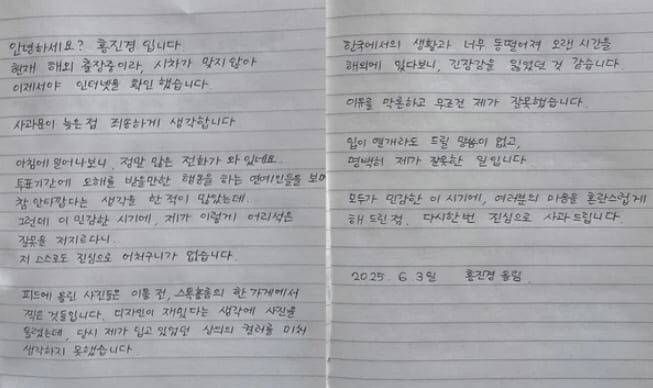 안녕하세요? 홍진경 입니다
현재 해외 출장중이라, 시차가 맞지 않아
이제서야 인터넷을 확인 했습니다.
사과문이 늦은점 죄송하게 생각합니다
아침에 일어나보니, 정말 많은 전화가 와 있데요..
투표기간에 오해를 받을만한 행동을 하는 연예인들을 보며
참 안타깝다는 생각을 한 적이 많았는데..
그런데 이 민감한 시기에, 제가 이렇게 어리석은
잘못을 저지르다니.
저 스스로도 진심으로 어처구니가 없습니다.
피드에 올린 사진들은 이틀 전, 스톡홀름의 한 가게에서
찍은 것들입니다. 디자인이 재밌다는 생각에 사진을
올렸는데, 당시 제가 입고 있었던 상의의 컬러를 미처
생각하지 못했습니다
한국에서의 생활과 너무 동떨어져 오랜 시간을
해외에 있다보니, 긴장감을 잃었던 것 같습니다.
이유를 막론하고 무조건 제가 잘못했습니다.
입이 열개라도 드릴 말씀이 없고,
명백히 제가 잘못한 일입니다.
모두가 민감한 이 시기에, 여러분의 마음을 혼란스럽게
해 드린 점. 다시한번 진심으로 사과 드립니다.
2025. 6. 3일 홍진경 올림.